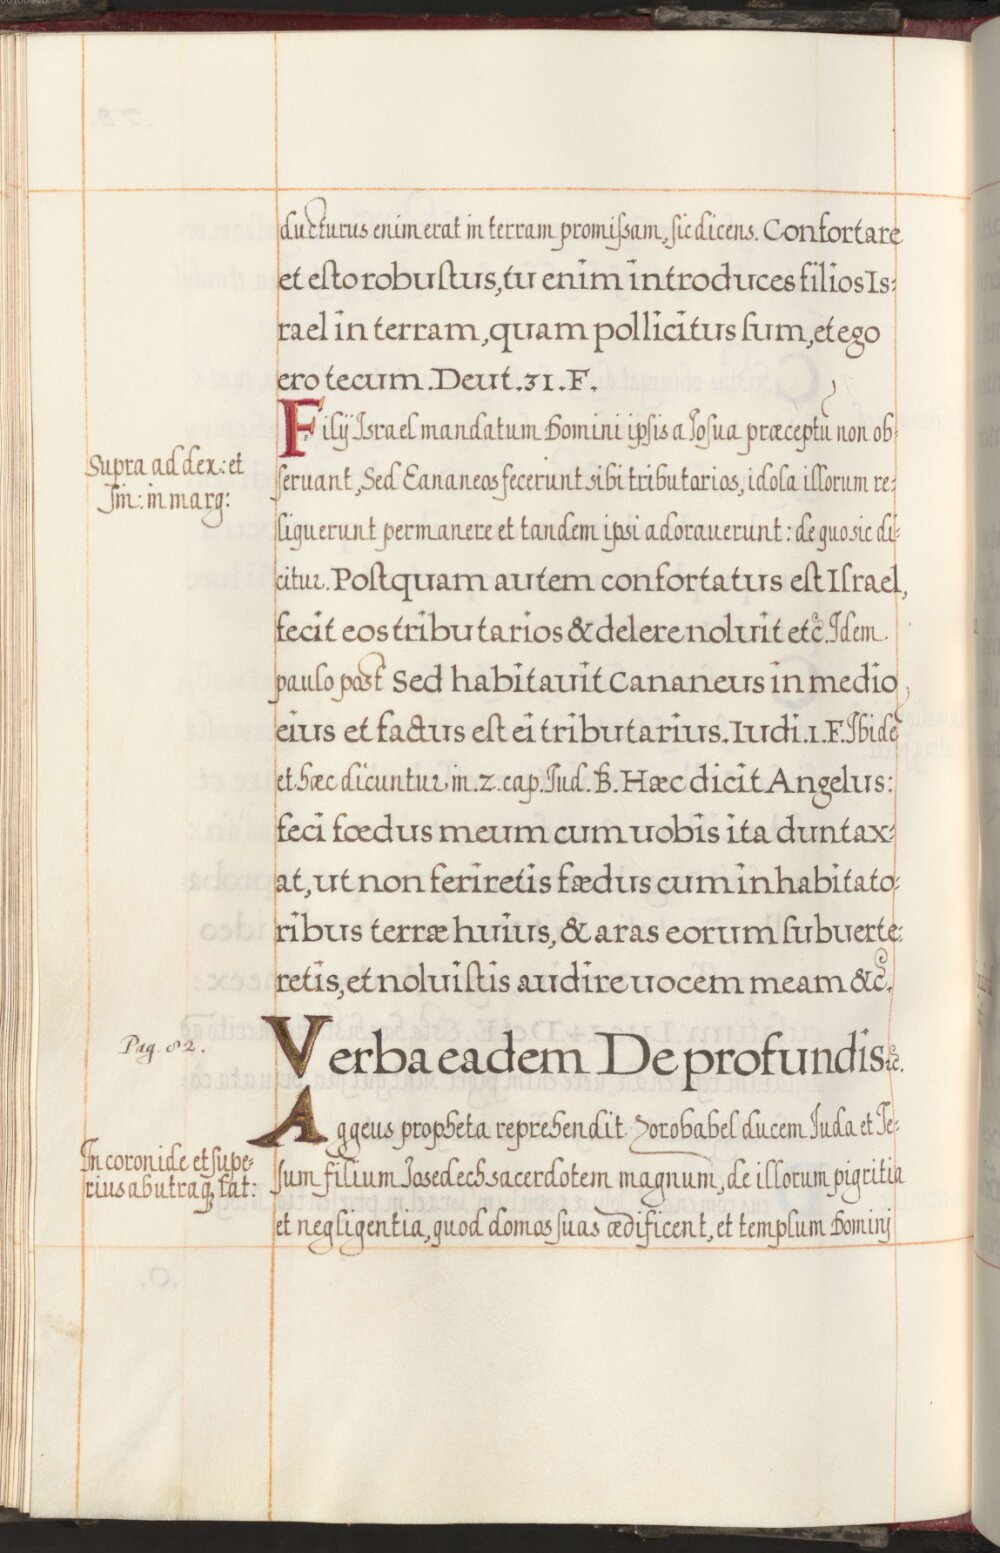 ducturus enim erat in terram promiſsam, ſic dicens. Confortare
et eſto robuſtus, tu enim introduces filios Is-
rael in terram, quam pollicitus ſum, et ego
ero tecum. Deut. 31. F.
Filij Israel mandatum Domini ipsis a Joſua præceptū non ob-
Supra ad dex: et
Sin: in marg:
ſeruant, Sed Cananeos fecerunt sibi tributarios, idola illorum re-
liquerunt permanere et tandem ipsi adorauerunt: de quo sic di-
citur. Poſtquam autem confortatus eſt Iſrael,
fecit eos tributarios & delere noluit etc. Idem
paulo post Sed habitauit Cananeus in medio
eius et factus eſt ei tributarius. Iudi. 1. F. Ibidē
et hæc dicuntur in. 2. cap. Iud. B. Hæc dicit Angelus:
feci fœdus meum cum uobis ita duntax-
at, ut non feriretis fædus cum inhabitato-
ribus terræ huius, & aras eorum ſubuerte-
retis, et noluiſtis audire uocem meam &c.
Pag. 82.
Verba eadem De profundis &c.
Aggeus propheta reprehendit Zorobabel ducem Juda et Je-
In coronide et supe-
rius ab utraq, Pat:
ſum filium Josedech sacerdotem magnum, de illorum pigritia
et negligentia, quod domos ſuas ædificent, et templum Domini